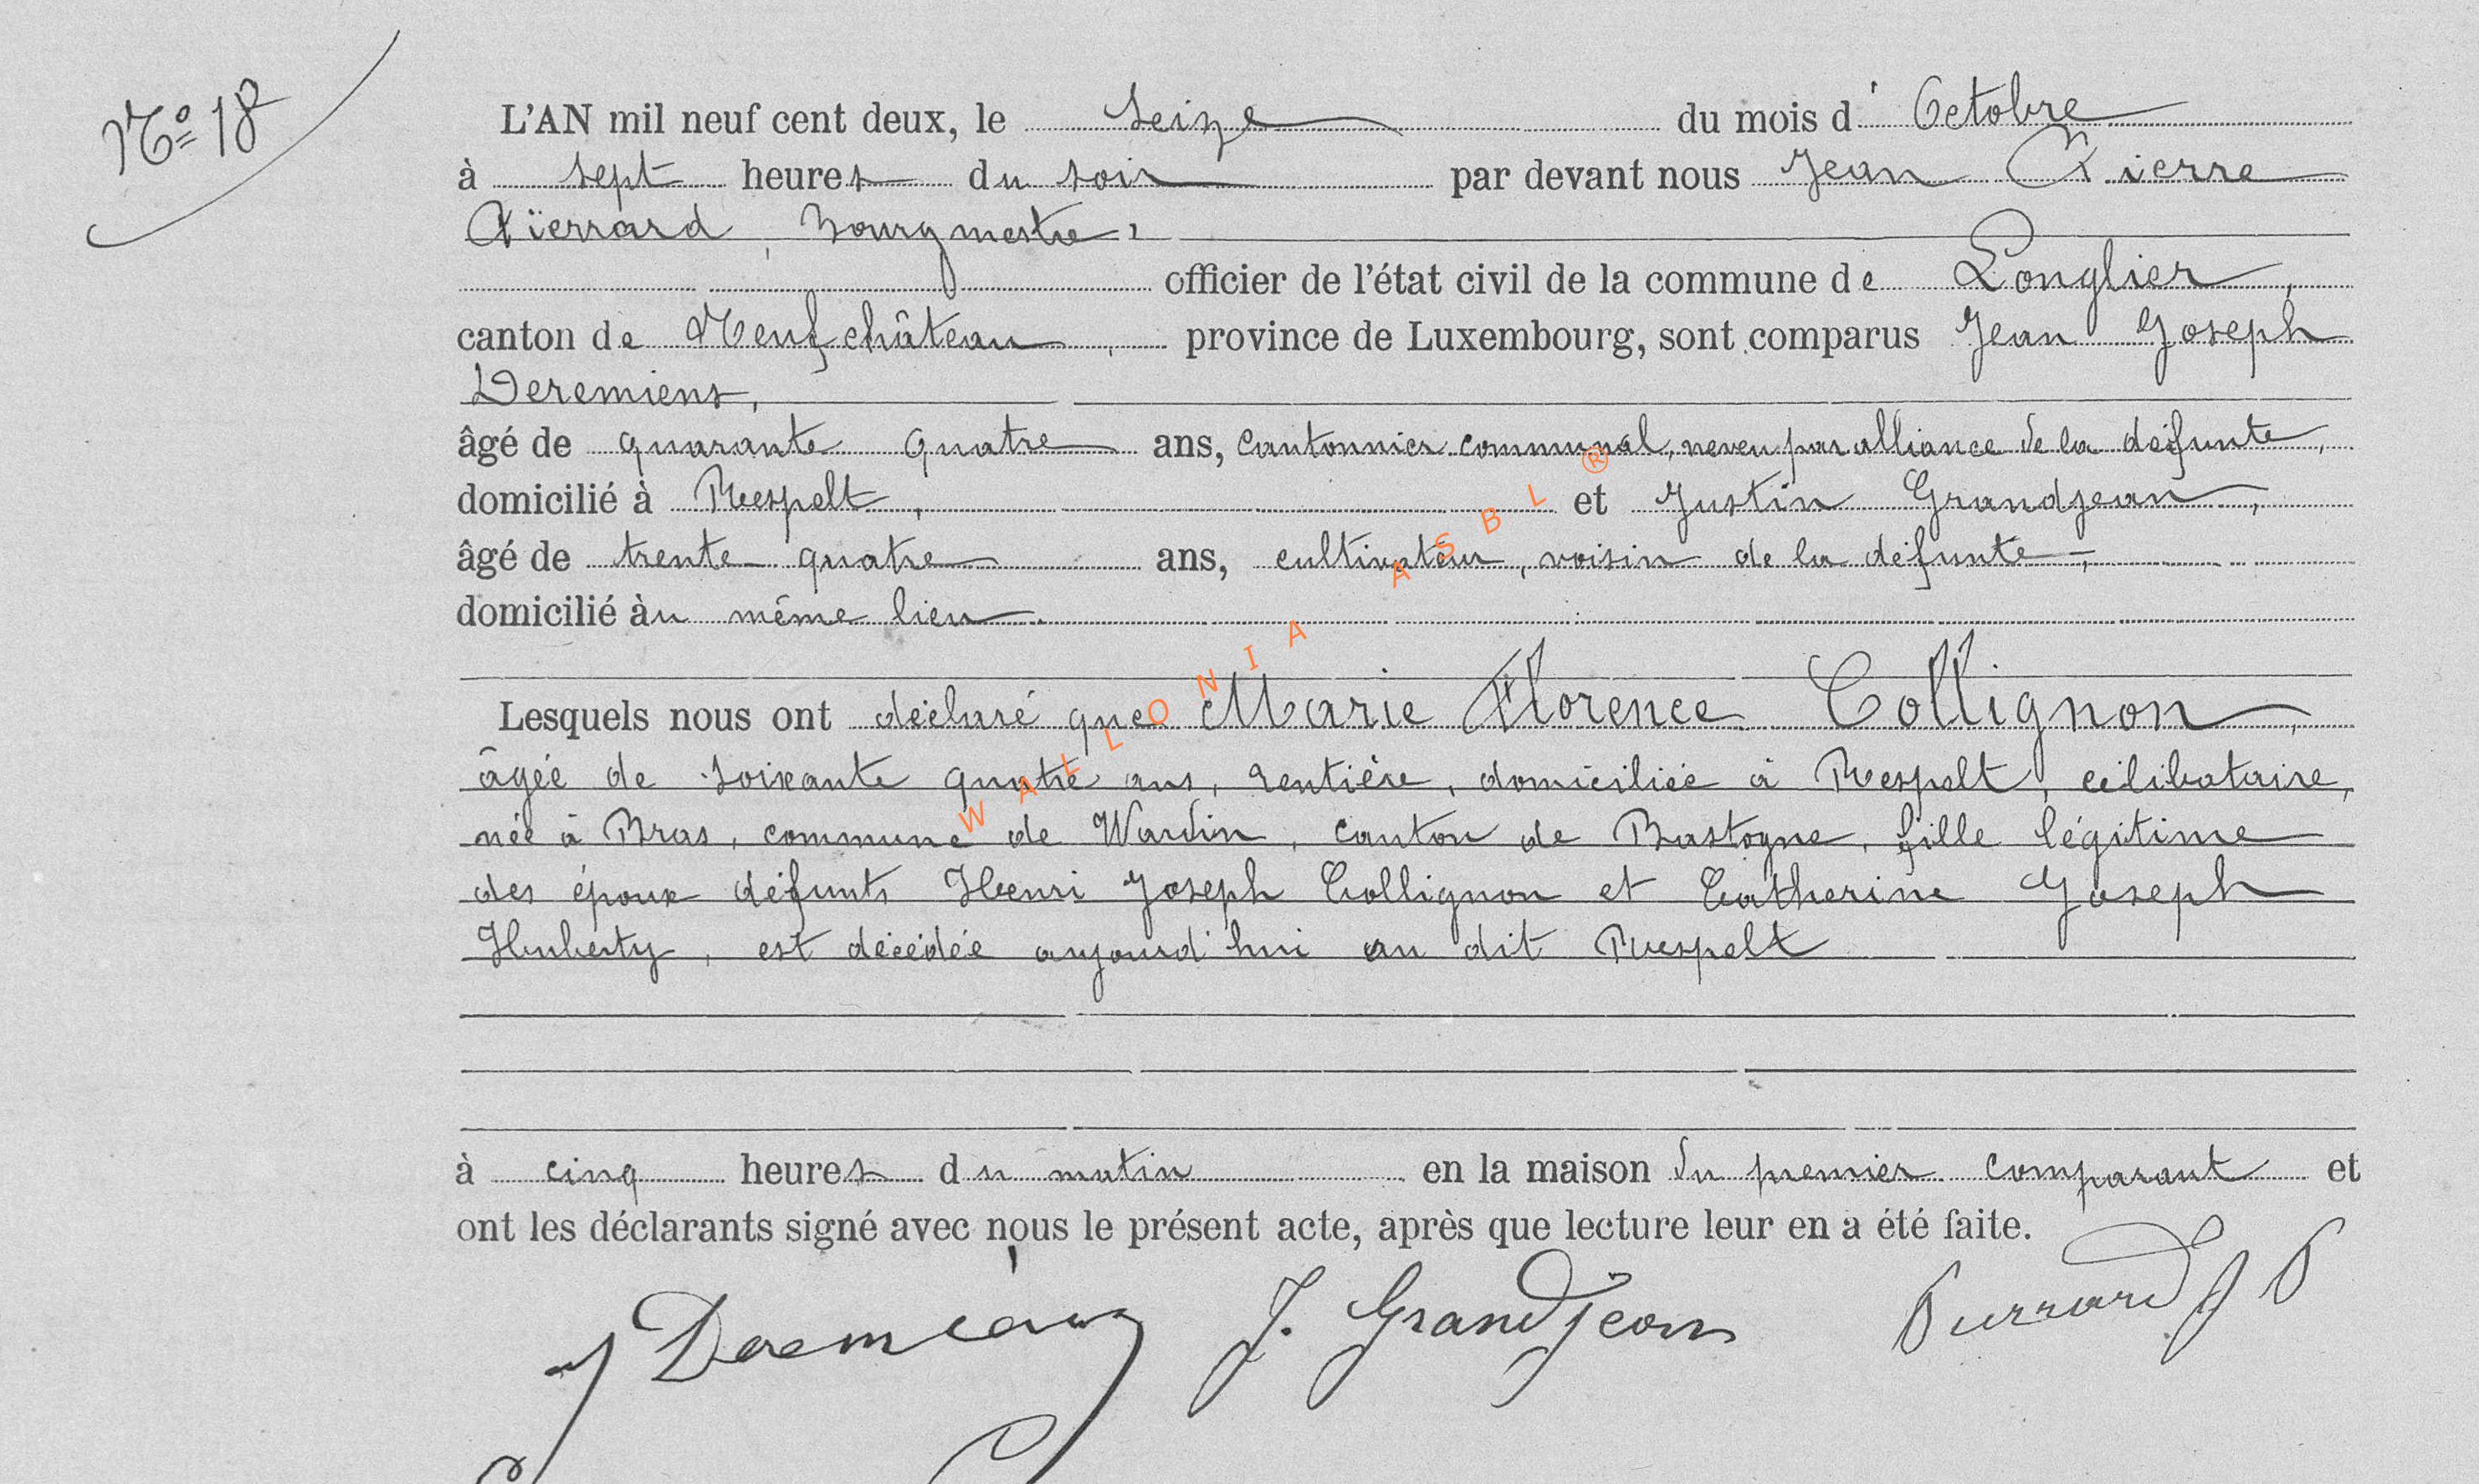 Nº 18
L'AN mil neuf cent deux, le seize du mois d'Octobre
à sept heures du soir par devant nous Jean Pierre
Pierrard, bourgmestre,
officier de l'état civil de la commune de Longlier,
canton de Neufchâteau, province de Luxembourg, sont comparus Jean Joseph
Deremiens,
âgé de quarante quatre ans, cantonnier communal, neveu par alliance de la défunte,
domicilié à Respelt, et Justin Grandjean,
âgé de trente quatre ans, cultivateur, voisin de la défunte,
domicilié àu même lieu.
Lesquels nous ont déclaré que Marie Florence Collignon,
âgée de soixante quatre ans, rentière, domiciliée à Respelt, célibataire,
née à Bras, commune de Wardin, canton de Bastogne, fille légitime
des époux défunts Henri Joseph Collignon et Catherine Joseph
Huberty, est décédée aujourd'hui au dit Respelt
à cinq heures du matin en la maison du premier comparant et
ont les déclarants signé avec nous le présent acte, après que lecture leur en a été faite.
J Deremiens J. Grandjean Pierrard J P
WALLONIA ASBL ®